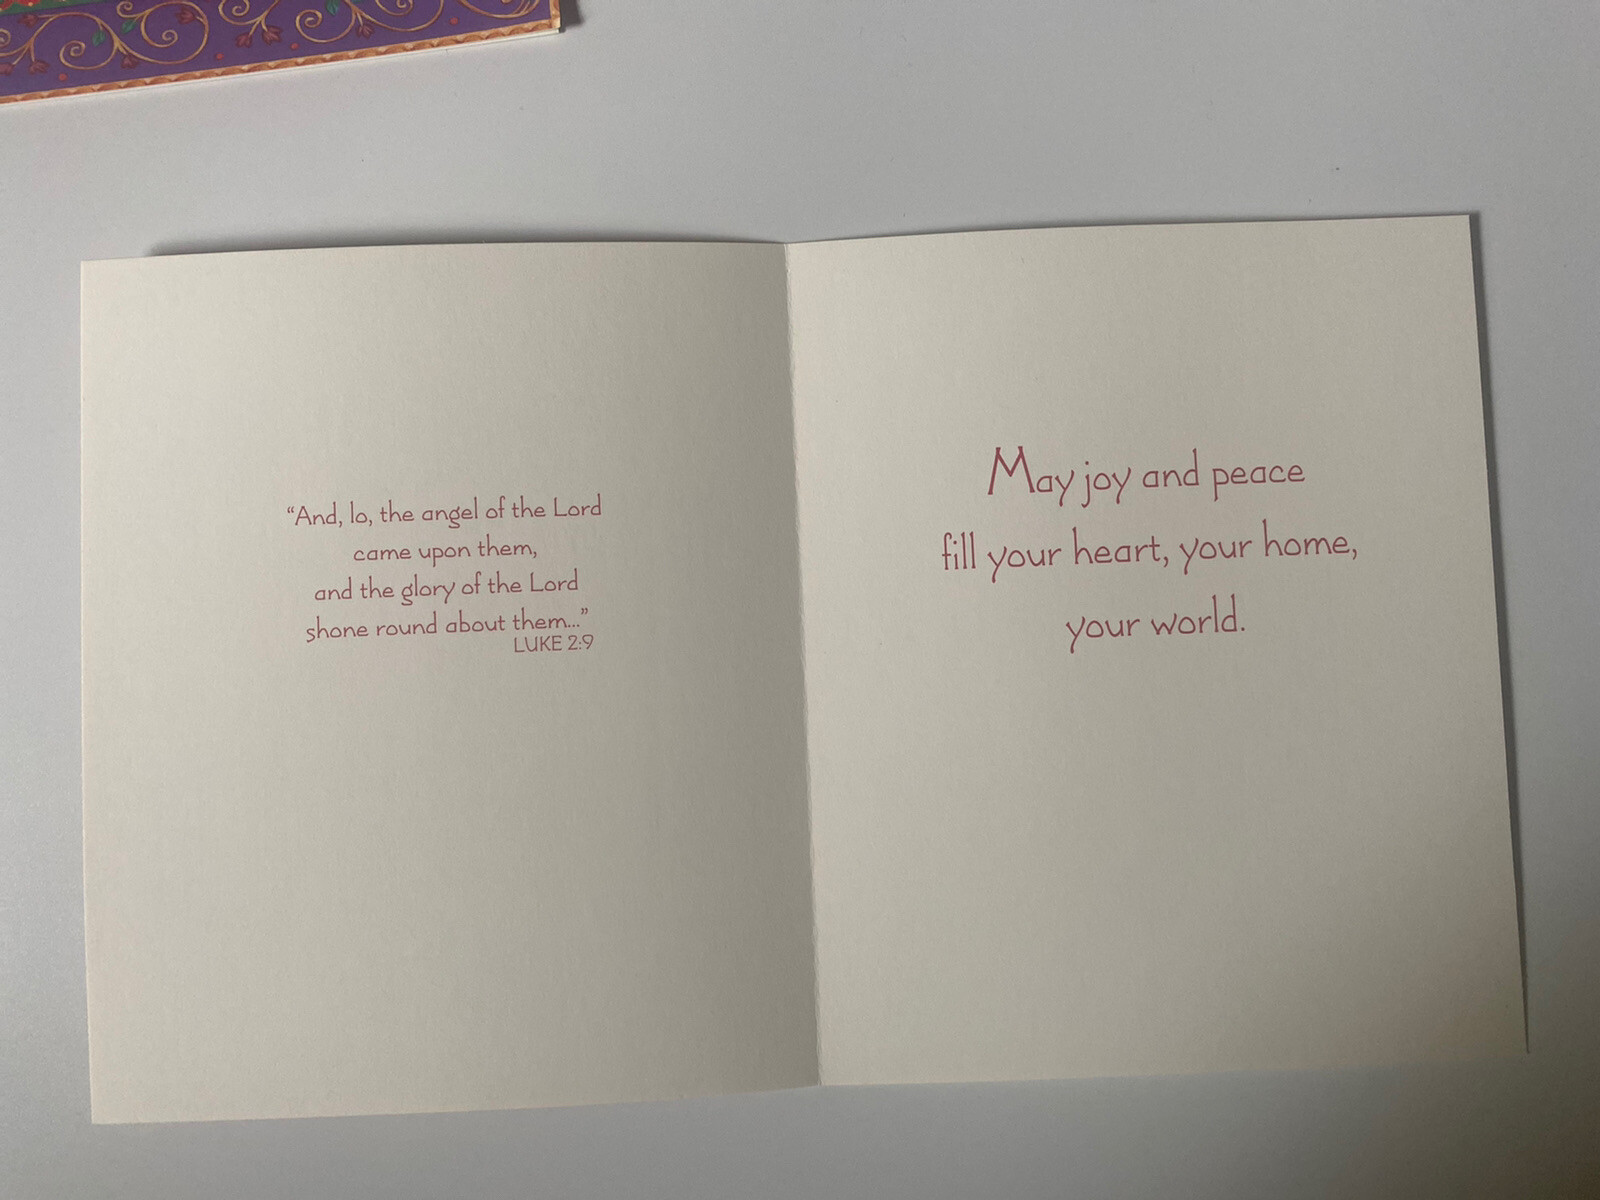 “And, lo, the angel of the Lord
came upon them,
and the glory of the Lord
shone round about them...”
LUKE 2:9
May joy and peace
fill your heart, your home,
your world.